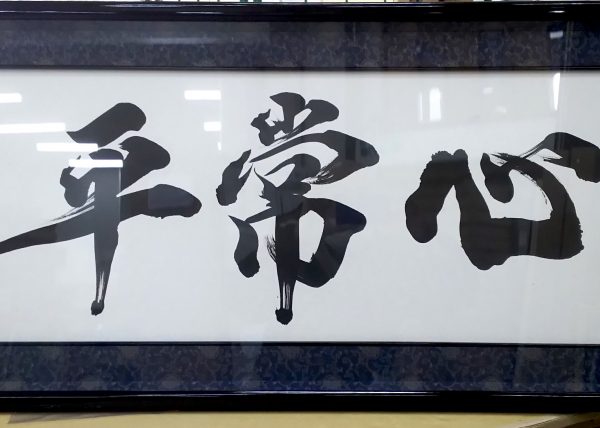 平常心